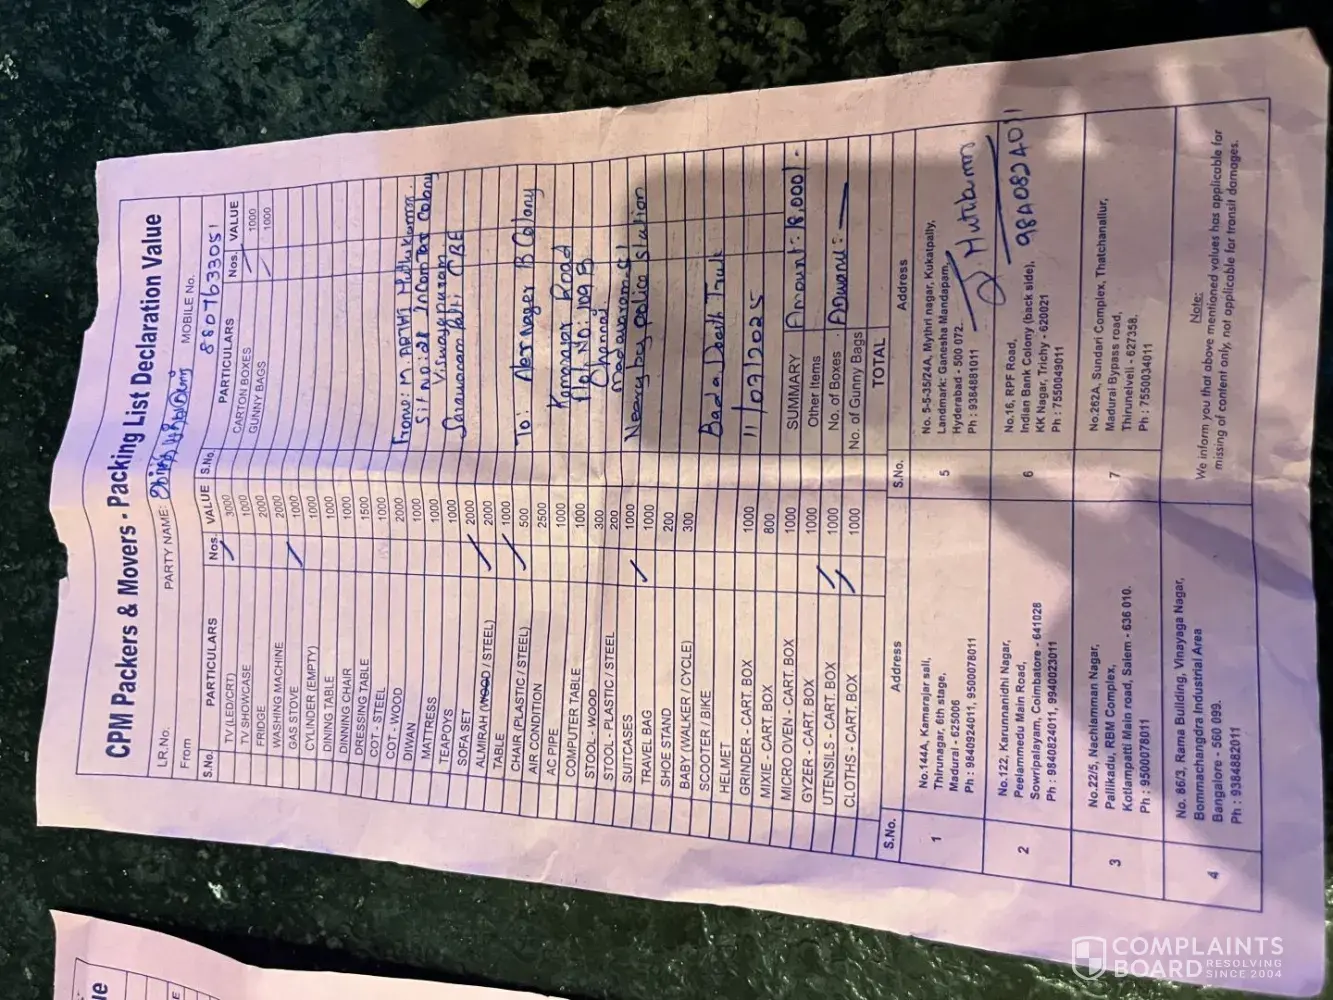 CPM Packers & Movers - Packing List Declaration Value
LR.No.
PARTY NAME:
MOBILE No.
From
8807633051
S.No. PARTICULARS Nos. VALUE S.No. PARTICULARS Nos. VALUE
TV (LED/CRT) 3000 CARTON BOXES 1000
TV SHOWCASE 1000 GUNNY BAGS 1000
FRIDGE 2000
WASHING MACHINE 2000
GAS STOVE 1000
CYLINDER (EMPTY) 1000
DINING TABLE 1000
DINNING CHAIR 1000
DRESSING TABLE 1500
COT - STEEL 1000
COT - WOOD 2000
DIWAN 1000
MATTRESS 1000
TEAPOYS 1000
SOFASET 2000
ALMIRAH (WOOD / STEEL) 2000
TABLE 1000
CHAIR (PLASTIC / STEEL) 500
AIR CONDITION 2500
AC PIPE 1000
COMPUTER TABLE 1000
STOOL - WOOD 300
STOOL - PLASTIC / STEEL 200
SUITCASES 1000
TRAVEL BAG 1000
SHOE STAND 200
BABY (WALKER / CYCLE) 300
SCOOTER / BIKE
HELMET
GRINDER - CART. BOX 1000
MIXIE - CART. BOX 800
MICRO OVEN - CART. BOX 1000
GYZER - CART. BOX 1000
UTENSILS - CART. BOX 1000
CLOTHS - CART. BOX 1000
From: M. Muthukumar
Colony
Vinayapuram
CBE
To: B Colony
Kamarajar Road
No: 109 B
Chennai
Nearby police station
11/02/2025
SUMMARY Amount: 18,000/-
Other Items
No. of Boxes Advance: —
No. of Gunny Bags
TOTAL
S.No. Address S.No. Address
1 No.144A, Kamarajar sali,
Thirunagar, 6th stage,
Madurai - 625006
Ph : 9840924011, 9500078011
5 No. 5-5-35/24A, Mythri nagar, Kukatpally,
Landmark: Ganesha Mandapam,
Hyderabad - 500 072.
Ph : 9384881011
2 No.122, Karunnanidhi Nagar,
Peelammedu Main Road,
Sowripalayam, Coimbatore - 641028
Ph : 9840824011, 9940023011
6 No.16, RPF Road,
Indian Bank Colony (back side),
KK Nagar, Trichy - 620021
Ph : 7550049011
9840824011
3 No.22/5, Nachiamman Nagar,
Pallikadu, RBM Complex,
Kotlampatti Main road, Salem - 636 010.
Ph : 9500078011
7 No.262A, Sundari Complex, Thatchanallur,
Madurai Bypass road,
Thirunelveli - 627358.
Ph : 7550034011
4 No. 86/3, Rama Building, Vinayaga Nagar,
Bommachangdra Industrial Area
Bangalore - 560 099.
Ph : 9384882011
Note:
We inform you that above mentioned values has applicable for
missing of content only, not applicable for transit damages.
COMPLAINTS
BOARD RESOLVING
SINCE 2004